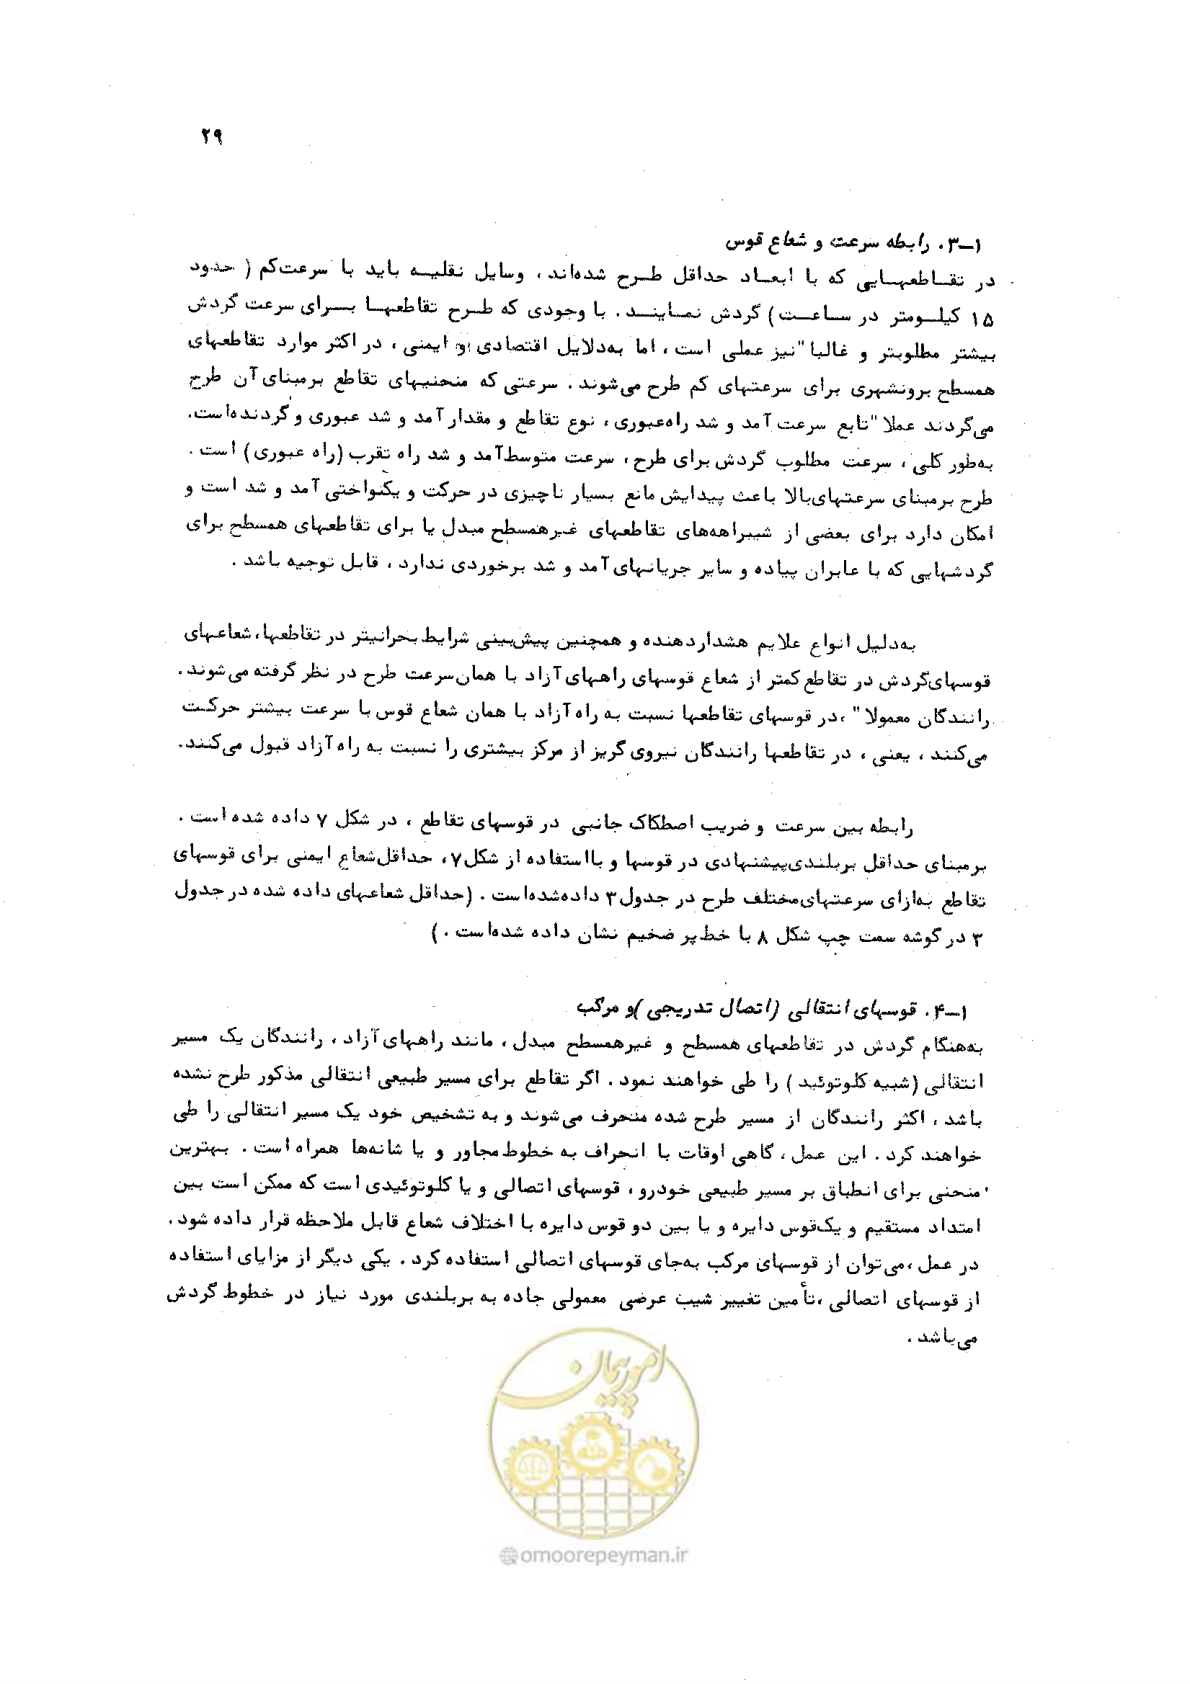 ۲۹
۱-۳. رابطه سرعت و شعاع قوس
در تقاطعهایی که با ابعاد حداقل طرح شده‌اند، وسایل نقلیه باید با سرعت‌کم ( حدود
۱۵ کیلومتر در ساعت) گردش نمایند. با وجودی که طرح تقاطعها برای سرعت گردش
بیشتر مطلوبتر و غالبا" نیز عملی است، اما به‌دلایل اقتصادی و ایمنی، در اکثر موارد تقاطعهای
همسطح برونشهری برای سرعتهای کم طرح می‌شوند. سرعتی که منحنیهای تقاطع برمبنای آن طرح
می‌گردند عملا" تابع سرعت آمد و شد راه‌عبوری، نوع تقاطع و مقدار آمد و شد عبوری و گردنده‌است.
به‌طور کلی، سرعت مطلوب گردش برای طرح، سرعت متوسط‌آمد و شد راه تقرب (راه عبوری) است.
طرح برمبنای سرعتهای‌بالا باعث پیدایش مانع بسیار ناچیزی در حرکت و یکنواختی آمد و شد است و
امکان دارد برای بعضی از شیبراهه‌های تقاطعهای غیرهمسطح مبدل یا برای تقاطعهای همسطح برای
گردشهایی که با عابران پیاده و سایر جریانهای آمد و شد برخوردی ندارد، قابل توجیه باشد.
به‌دلیل انواع علایم هشداردهنده و همچنین پیش‌بینی شرایط بحرانیتر در تقاطعها، شعاعهای
قوسهای‌گردش در تقاطع کمتر از شعاع قوسهای راههای آزاد با همان‌سرعت طرح در نظر گرفته می‌شوند.
رانندگان معمولا"، در قوسهای تقاطعها نسبت به راه آزاد با همان شعاع قوس با سرعت بیشتر حرکت
می‌کنند، یعنی، در تقاطعها رانندگان نیروی گریز از مرکز بیشتری را نسبت به راه آزاد قبول می‌کنند.
رابطه بین سرعت و ضریب اصطکاک جانبی در قوسهای تقاطع، در شکل ۷ داده شده است.
برمبنای حداقل بربلندی‌پیشنهادی در قوسها و بااستفاده از شکل۷، حداقل‌شعاع ایمنی برای قوسهای
تقاطع به‌ازای سرعتهای‌مختلف طرح در جدول۳ داده‌شده‌است. (حداقل شعاعهای داده شده در جدول
۳ در گوشه سمت چپ شکل ۸ با خط‌پر ضخیم نشان داده شده‌است.)
۱-۴. قوسهای انتقالی (اتصال تدریجی) و مرکب
به‌هنگام گردش در تقاطعهای همسطح و غیرهمسطح مبدل، مانند راههای آزاد، رانندگان یک مسیر
انتقالی (شبیه کلوتوئید) را طی خواهند نمود. اگر تقاطع برای مسیر طبیعی انتقالی مذکور طرح نشده
باشد، اکثر رانندگان از مسیر طرح شده منحرف می‌شوند و به تشخیص خود یک مسیر انتقالی را طی
خواهند کرد. این عمل، گاهی اوقات با انحراف به خطوط مجاور و یا شانه‌ها همراه است. بهترین
منحنی برای انطباق بر مسیر طبیعی خودرو، قوسهای اتصالی و یا کلوتوئیدی است که ممکن است بین
امتداد مستقیم و یک‌قوس دایره و یا بین دو قوس دایره با اختلاف شعاع قابل ملاحظه قرار داده شود.
در عمل، می‌توان از قوسهای مرکب به‌جای قوسهای اتصالی استفاده کرد. یکی دیگر از مزایای استفاده
از قوسهای اتصالی، تأمین تغییر شیب عرضی معمولی جاده به بربلندی مورد نیاز در خطوط گردش
می‌باشد.
امور پیمان
@omoorepeyman.ir